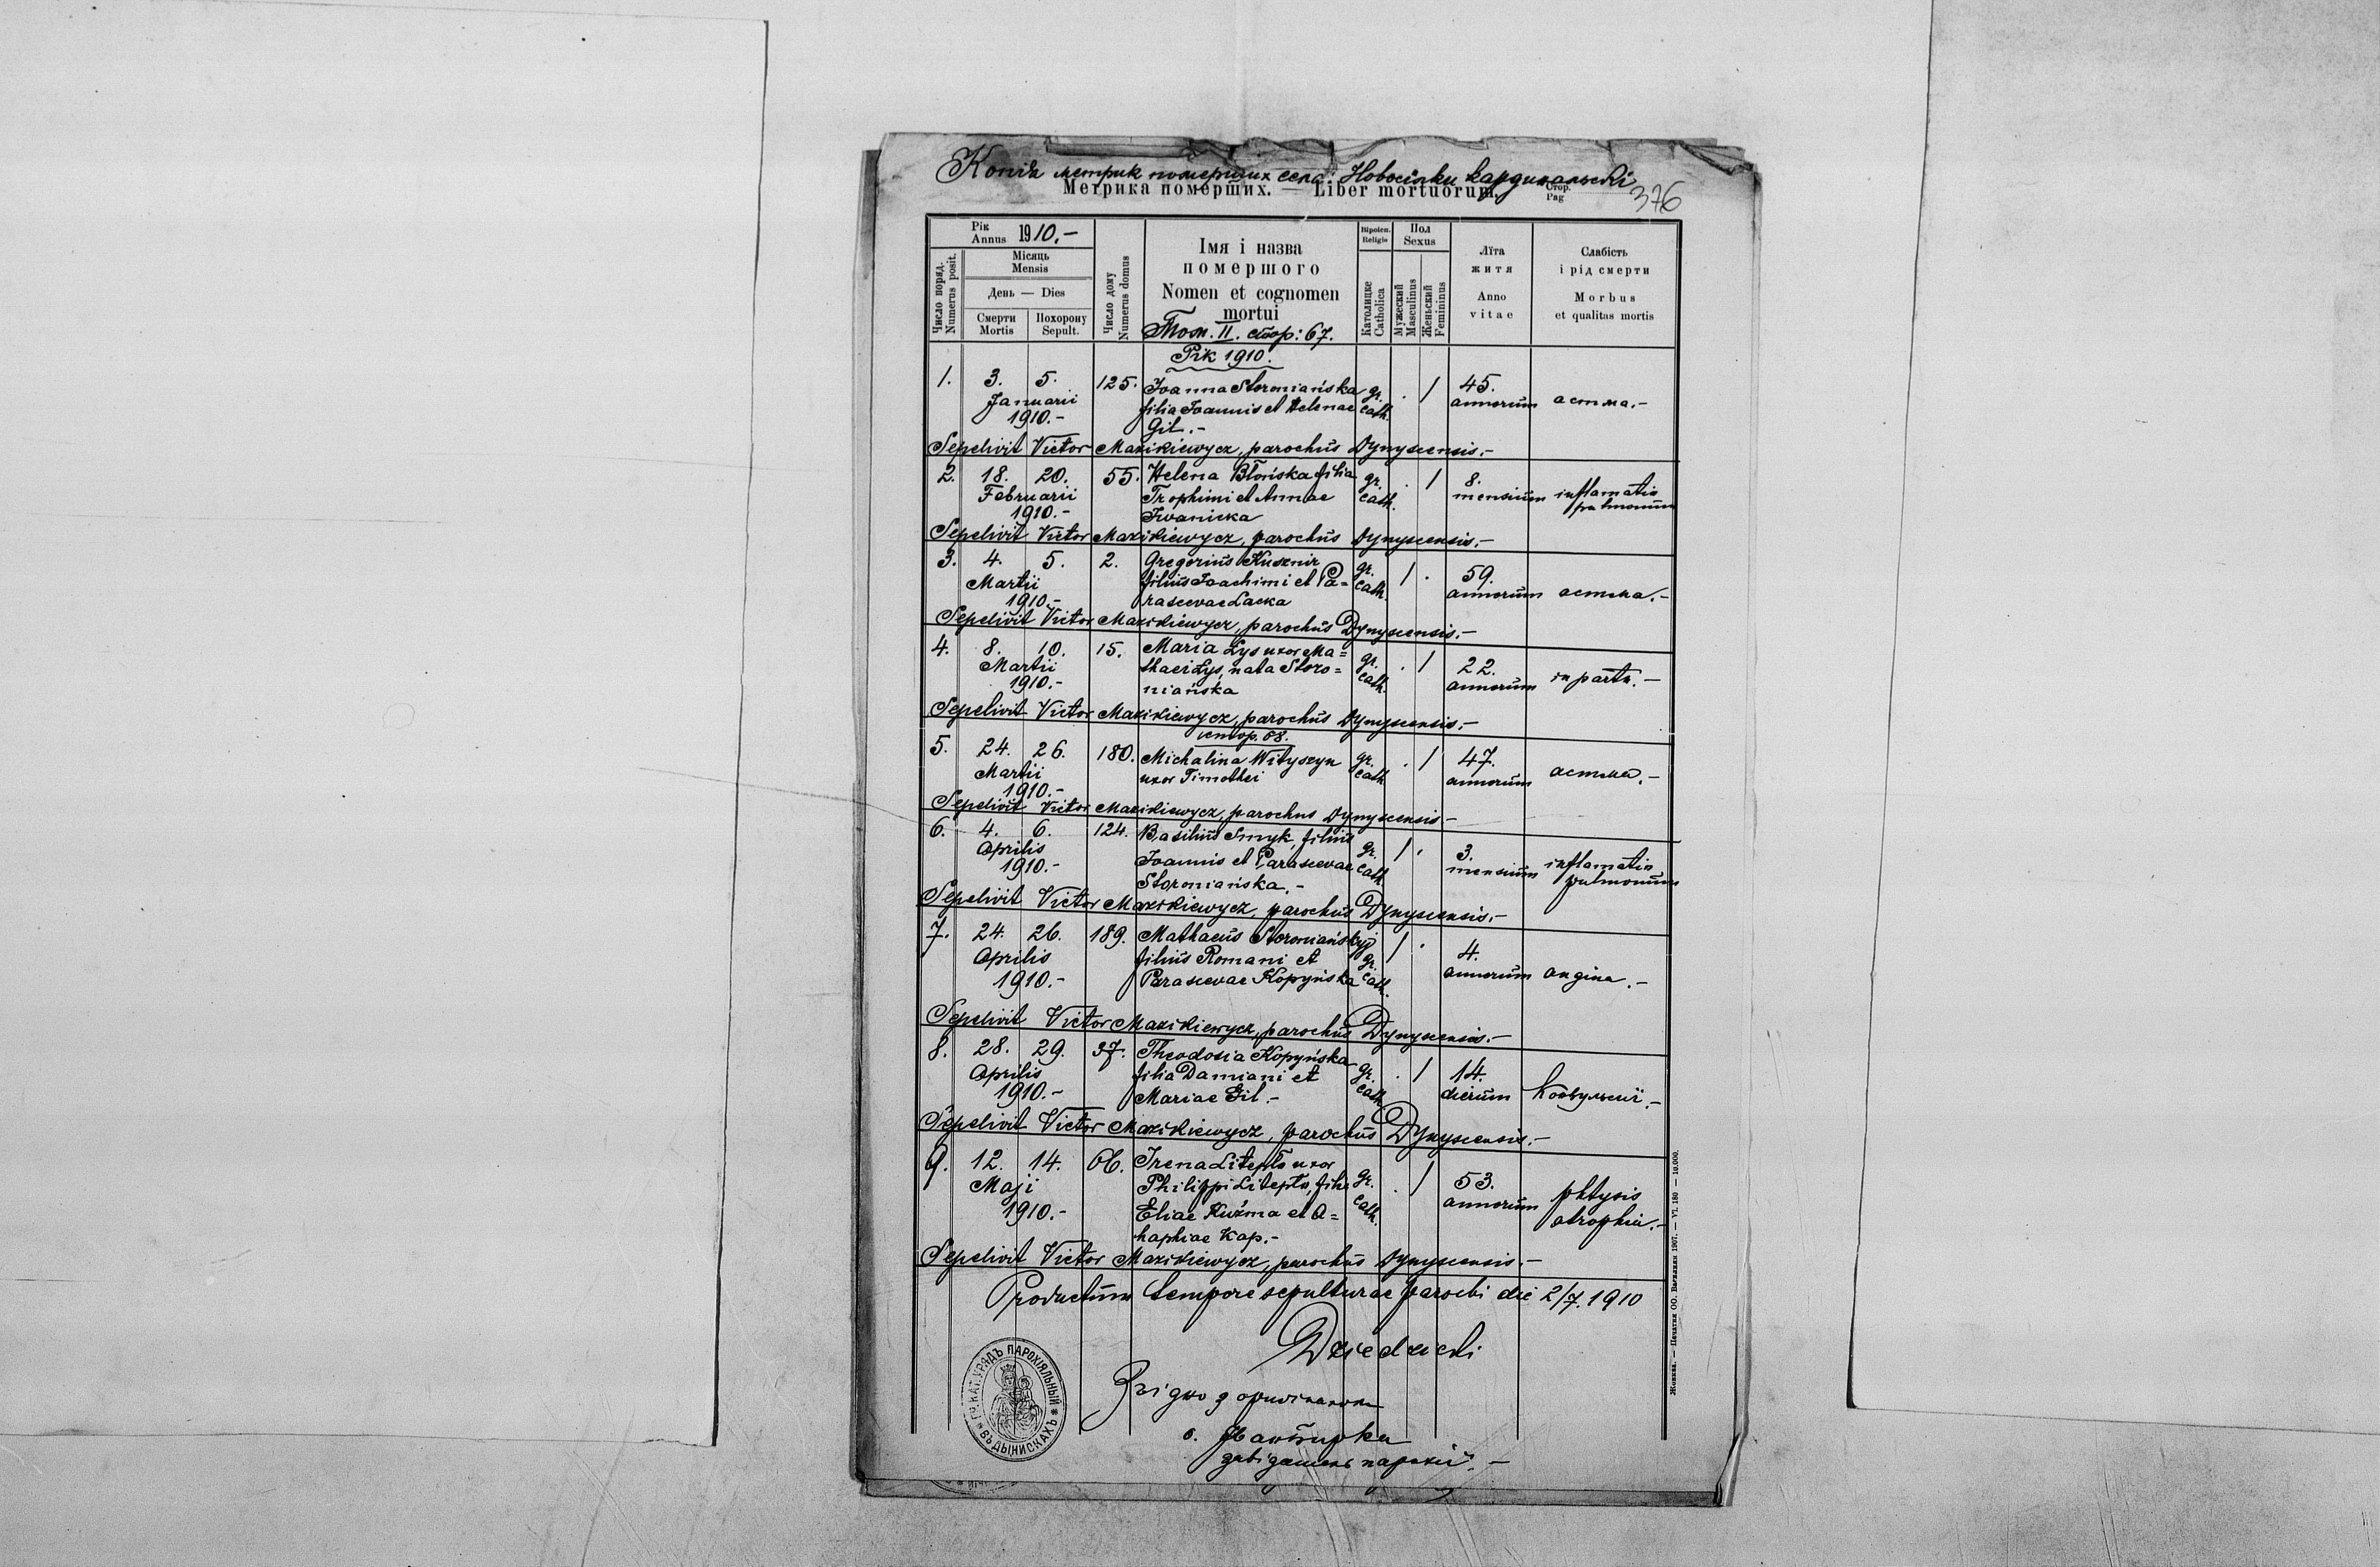 Копія метрик померших села: Новосілки кардинальскі
Метрика померших. — Liber mortuorum.
Стор.
Pag
376
Рік
Annus 1910.-
Число поряд.
Numerus posit.
Місяць
Mensis
День — Dies
Смерти
Mortis
Похорону
Sepult.
Число дому
Numerus domus
Імя і назва
помершого
Nomen et cognomen
mortui
Том. II. стор: 67.
Віроісп.
Religio
Католицке
Catholica
Пол
Sexus
Мужеский
Masculinus
Женьский
Femininus
Літа
житя
Anno
vitae
Слабість
і рід смерти
Morbus
et qualitas mortis
Рік 1910.
1. 3. 5. 125. Joanna Storoniańska gr. . / 45.
Januarii filia Joannis et Helenae cath. annorum астма.-
1910.- Gil.-
Sepelivit Victor Mazikiewycz, parochus Dynyscensis.-
2. 18. 20. 55. Helena Błońska filia gr. . / 8.
Februarii Trophimi et Annae cath. mensium inflamatio
1910.- Iwanicka pulmonum
Sepelivit Victor Mazikiewycz, parochus Dynyscensis.-
3. 4. 5. 2. Gregorius Kusznir gr. / . 59.
Martii filius Joachimi et Pa= cath. annorum астма.-
1910.- rascevae Lacka
Sepelivit Victor Mazikiewycz, parochus Dynyscensis.-
4. 8. 10. 15. Maria Lys uxor Ma= gr. . / 22.
Martii thaei Lys, nata Storo= cath. annorum in partu.-
1910.- niańska
Sepelivit Victor Mazikiewycz, parochus Dynyscensis.-
стор. 68.
5. 24. 26. 180. Michalina Wityszyn gr. . / 47.
Martii uxor Timothei cath. annorum астма.-
1910.-
Sepelivit Victor Mazikiewycz, parochus Dynyscensis-
6. 4. 6. 124. Basilius Smyk, filius gr. / . 3.
Aprilis Joannis et Parascevae cath. mensium inflamatio
1910.- Storoniańska.- pulmonum
Sepelivit Victor Mazikiewycz, parochus Dynyscensis.-
7. 24. 26. 189. Mathaeus Storoniańskyj / . 4.
Aprilis filius Romani et gr. annorum angina.-
1910.- Parascevae Kopyńska cath.
Sepelivit Victor Mazikiewycz, parochus Dynyscensis.-
8. 28. 29. 37. Theodosia Kopyńska gr. . / 14.
Aprilis filia Damiani et cath. dierum конвульсиї.-
1910.- Mariae Gil.-
Sepelivit Victor Mazikiewycz, parochus Dynyscensis.-
9. 12. 14. 66. Irena Litepło uxor gr. . / 53.
Maji Philippi Litepło, filia cath. annorum phtysis
1910.- Eliae Kuźma et A= atrophia.-
haphiae Kap.-
Sepelivit Victor Mazikiewycz, parochus Dynyscensis.-
Productum tempore sepulturae parochi die 2/7. 1910
Dziedzicki
Згідно з оригіналом
о.
завідатель парохії.-
ГР. КАТ. УРЯДЪ ПАРОХІЯЛЬНЫЙ
ВЪ ДЫНИСКАХЪ
Жовква. — Печатня ОО. Василиян 1907. — VI. 180 — 10.000.